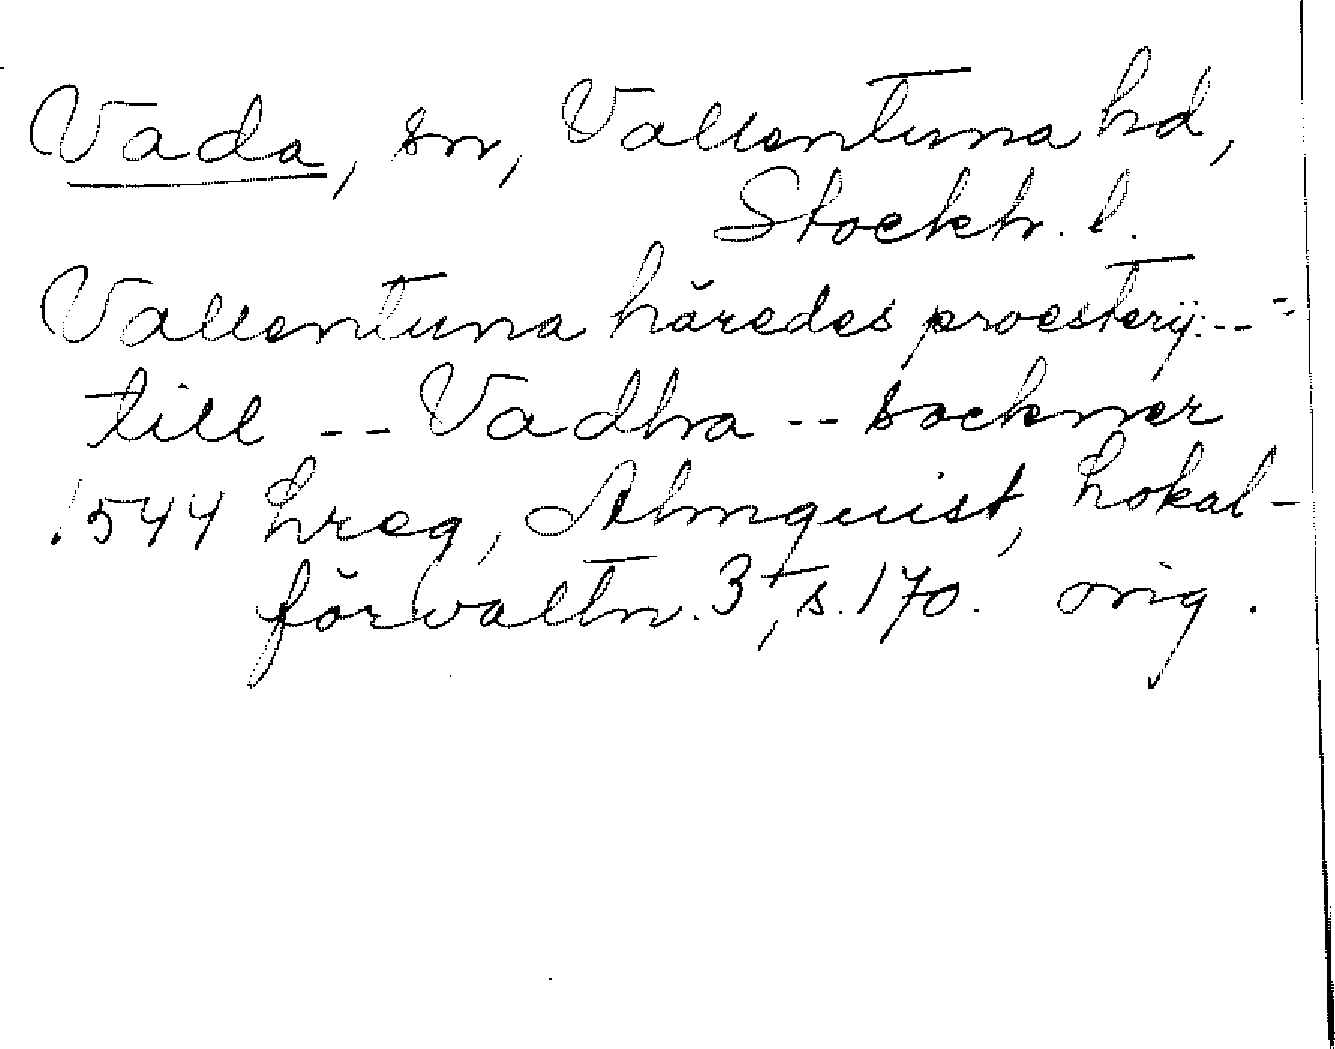 Vada, sn, Vallentuna hd,
Stockh. l.
Vallentuna häredes proesterij: -- -
till -- Vadha -- sockner
1544 hreg, Almquist, Lokal-
förvaltn. 3, s. 170. orig.